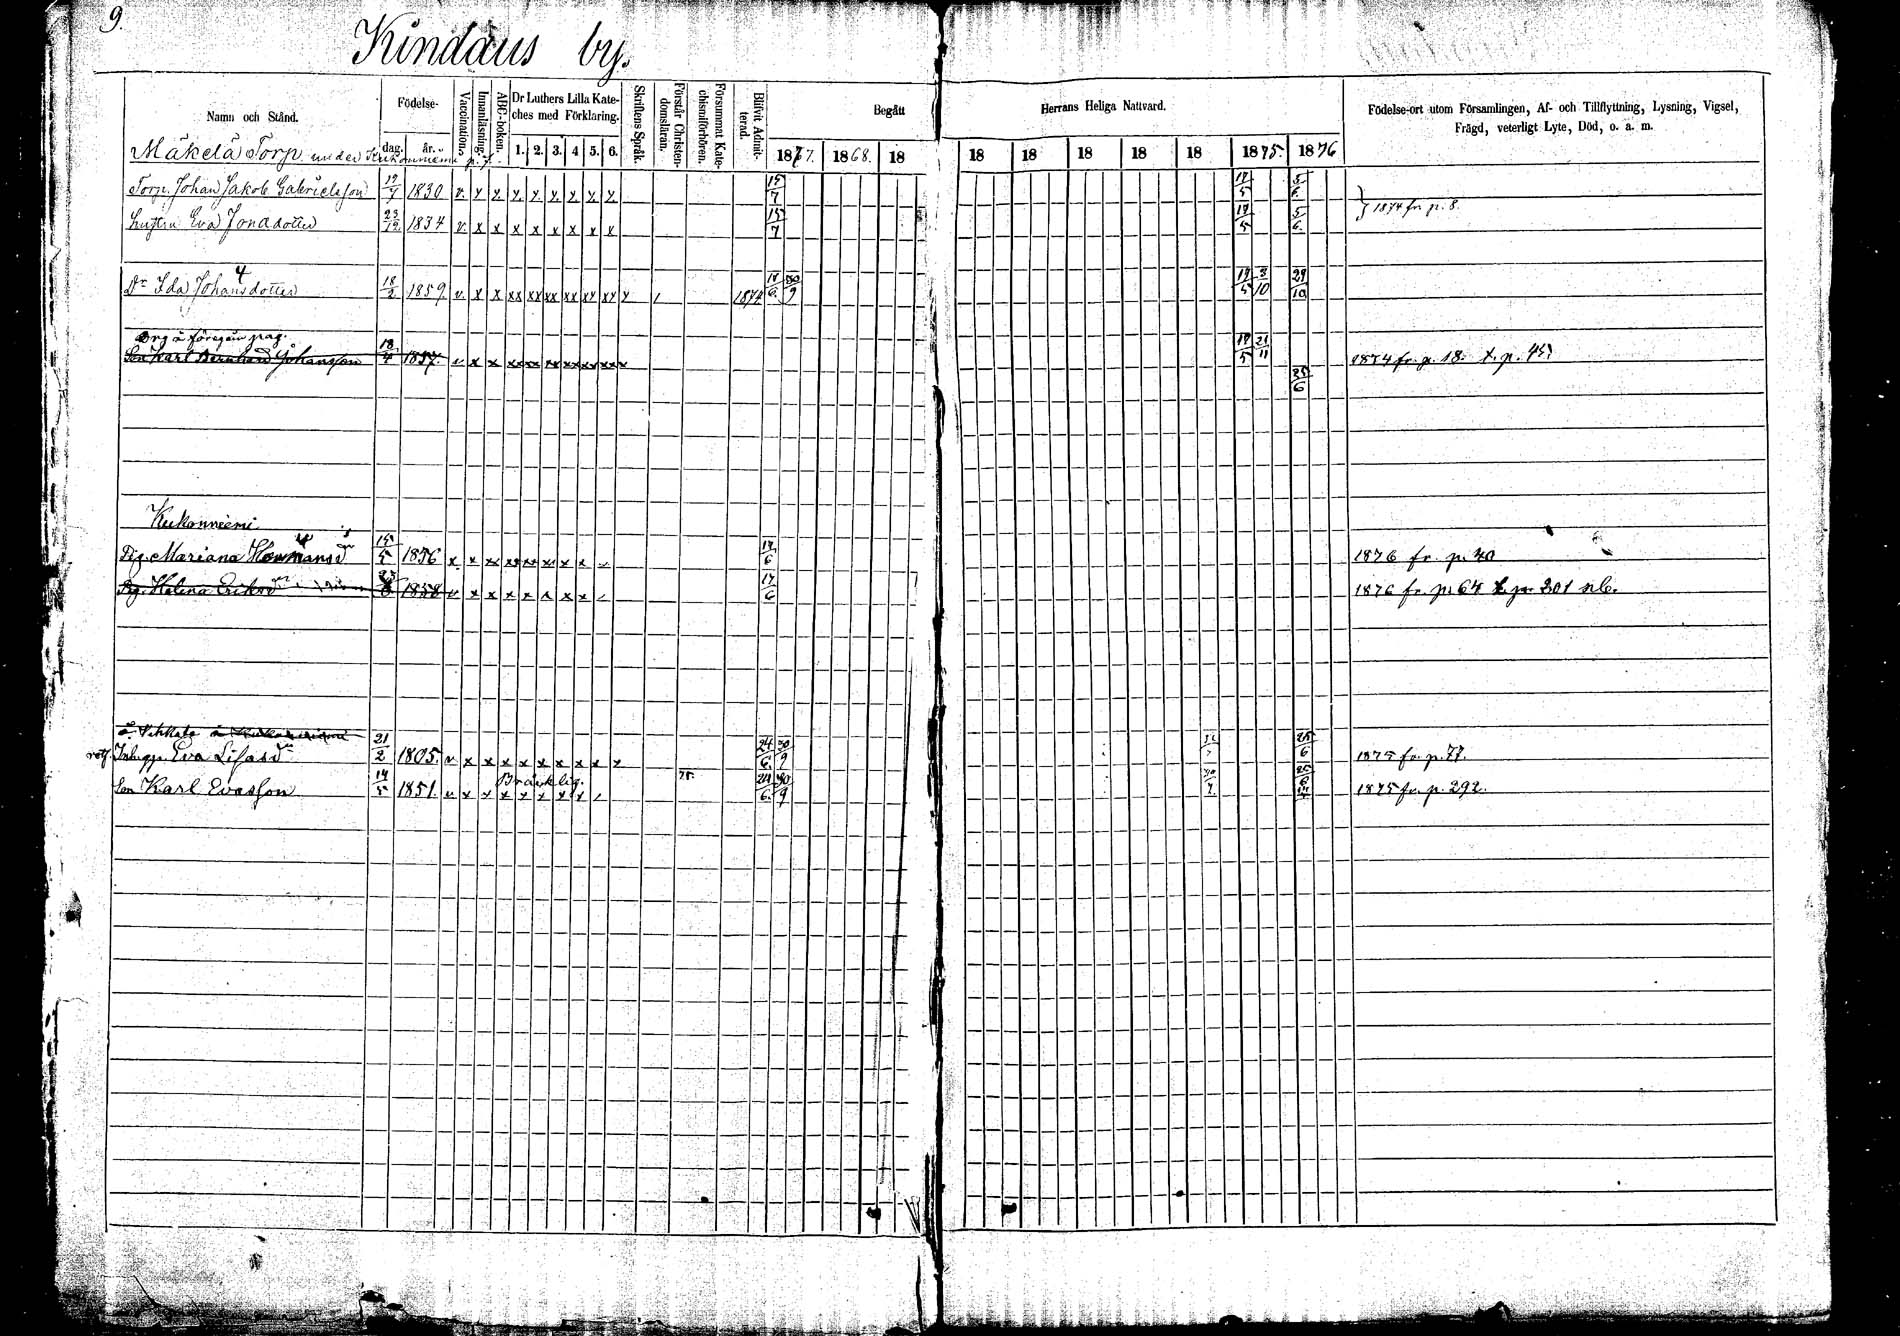 9.
Kindaus by.
Namn och Stånd.
Födelse-
dag. år.
Vaccination.
Innanläsning.
ABC-boken.
Dr Luthers Lilla Kate-
ches med Förklaring.
1. 2. 3. 4 5. 6.
Skriftens Språk.
Förstår Christen-
domsläran.
Försummat Kate-
chismiförhören.
Blifvit Admit-
terad.
Begått
Herrans Heliga Nattvard.
1867. 1868. 18
18 18 18 18 18 1875. 1876
Födelse-ort utom Församlingen, Af- och Tillflyttning, Lysning, Vigsel,
Frägd, veterligt Lyte, Död, o. a. m.
Mäkelä Torp under
Torp. Johan Jakob Gabrielsson 1830 v. x x x x x x x x 15/7 17/5 5/6.
} 1874 fr. p. 8.
Hustru Eva Jonasdotter 23/12 1834 v. x x x x x x x x 15/7 17/5 5/6.
4
Dr Ida Johansdotter 18/2 1859. v. x x xx xx xx xx xx xx x 1874 30/9 3/10 29/10
Son Karl Bernhard Johansson 18/4 1857. v x x xx xx xx xx xx xxx 21/11 1874 fr. p. 18.
25/6
Kukonniemi
Pig. Mariana Hermansdr 15/5 1856 x x xx xx xx xx x x 17/6 1876 fr. p. 40
Pig. Helena Eriksdr 1858 v x x x x x x x 17/6 1876 fr. p. 64 t. p. 201 nb.
Inhyp. Eva Lisasdr 21/2 1805. v x x x x x x x x 24/6 30/9 25/6 1875 fr. p. 77.
Bräcklig.
Son Karl Evasson 14/5 1851. v x x x x x x x 75. 24/6. 30/9 25/6 1875 fr. p. 292.